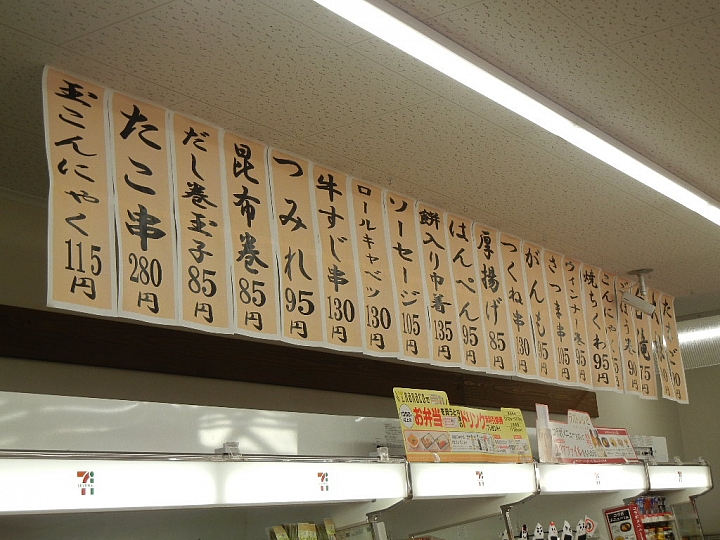 玉こんにゃく 115円
たこ串 280円
だし巻玉子 85円
昆布巻 85円
つみれ 95円
牛すじ串 130円
ロールキャベツ 130円
ソーセージ 105円
餅入り巾着 135円
はんぺん 95円
厚揚げ 85円
つくね串 130円
がんも 95円
さつま串
ウィンナー巻 95円
焼ちくわ 95円
こんにゃく
ごぼう巻
たまご
お弁当
ドリンク